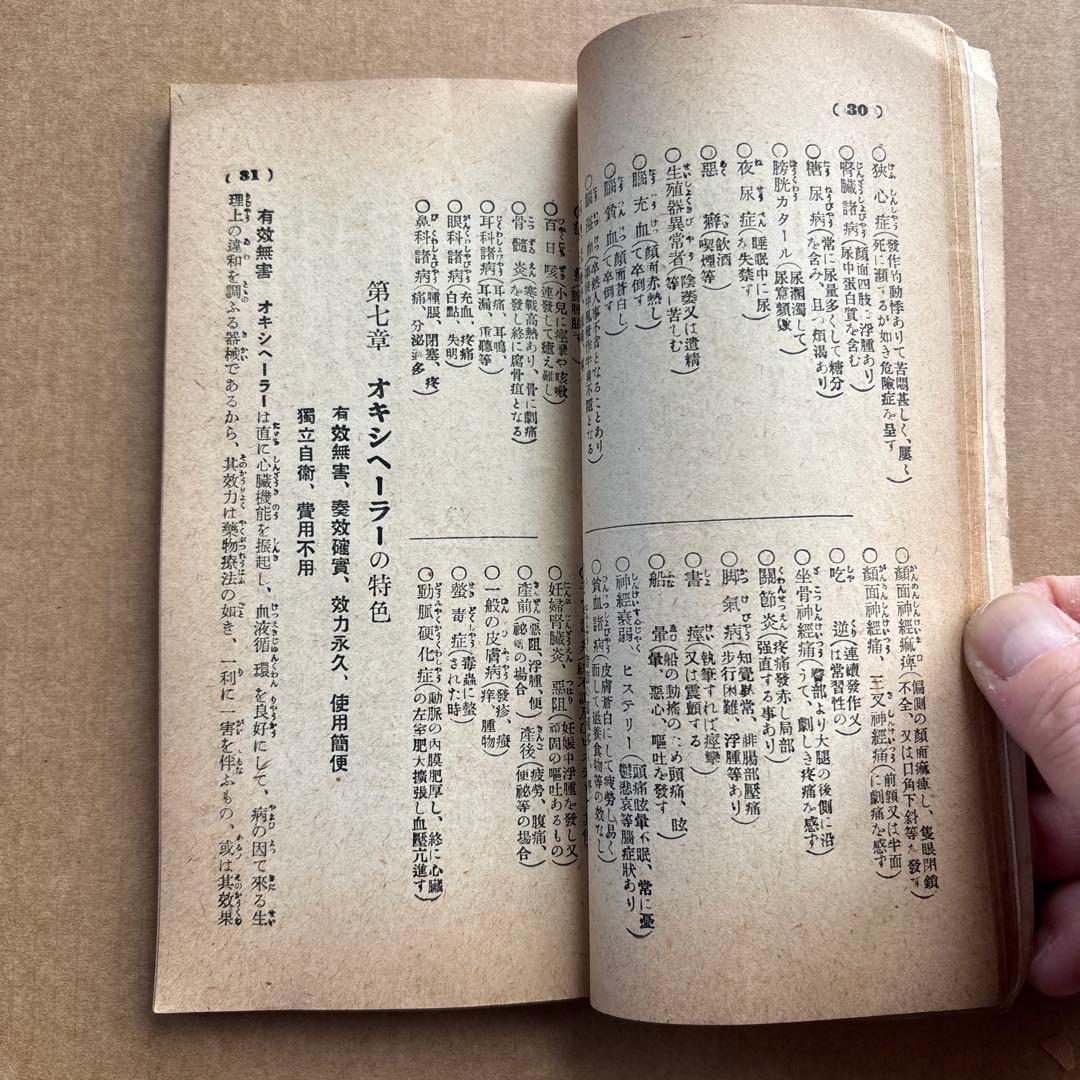 (30)
○狹心症(發作的動悸ありて苦悶甚しく、屢〻死に瀕するが如き危險症を呈す)
○腎臟諸病(顏面四肢に浮腫あり尿中蛋白質を含む)
○糖尿病(常に尿量多くして糖分を含み、且つ煩渴あり)
○膀胱カタール(尿溷濁して尿意頻數)
○夜尿症(睡眠中に尿を失禁す)
○惡癖(飮酒喫煙等)
○生殖器異常者(陰萎又は遺精等に苦しむ)
○腦充血(顏面赤熱して卒倒す)
○腦貧血(顏面蒼白して卒倒す)
○顏面神經痲痺(偏側の顏面痲痺し、隻眼閉鎖不全、又は口角下斜等を發す)
○顏面神經痛、三叉神經痛(前額又は半面に劇痛を感ず)
○吃逆(連續發作又は常習性の)
○坐骨神經痛(臀部より大腿の後側に沿うて、劇しき疼痛を感ず)
○關節炎(疼痛發赤し局部强直する事あり)
○脚氣病(知覺異常、腓腸部壓痛步行困難、浮腫等あり)
○書痙(執筆すれば痙攣又は震顫す)
○船暈(船の動搖のため頭痛、眩暈、惡心、嘔吐を發す)
○神經衰弱、ヒステリー(頭痛眩暈不眠、常に憂鬱悲哀等腦症狀あり)
○貧血諸病(皮膚蒼白にして疲勞し易く而して滋養食物等の效なし)
○百日咳(小兒に痙攣や咳嗽連發して癒え難し)
○骨髓炎(寒戰高熱あり、骨に劇痛を發し終に腐骨疽となる)
○耳科諸病(耳痛、耳鳴、耳漏、重聽等)
○眼科諸病(充血、疼痛白點、失明)
○鼻科諸病(腫脹、閉塞、疼痛、分泌過多)
○妊婦腎臟炎、惡阻(妊娠中浮腫を發し又頑固の嘔吐あるもの)
○產前(惡阻、浮腫、便祕等の場合)產後(疲勞、腹痛、便祕等の場合)
○一般の皮膚病(發疹、癢痒、腫物)
○螫毒症(毒蟲に螫された時)
○動脈硬化症(動脈の內膜肥厚し、終に心臟の左室肥大擴張し血壓亢進す)
第七章 オキシヘーラーの特色
有效無害、奏效確實、效力永久、使用簡便、
獨立自衞、費用不用
有效無害 オキシヘーラーは直に心臟機能を振起し、血液循環を良好にして、病の因て來る生
理上の違和を調ふる器械であるから、其效力は藥物療法の如き、一利に一害を伴ふもの、或は其效果
(31)